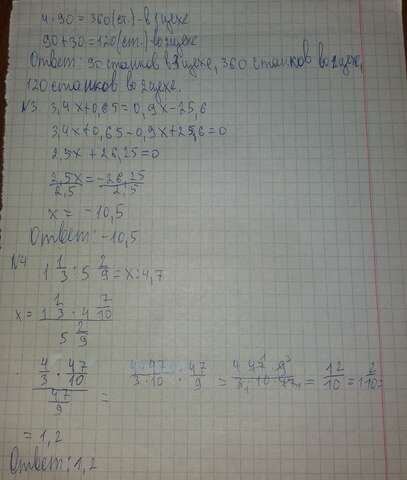 4·90=360(ст.)-в 1 цехе
90+30=120(ст.) во 2 цехе
Ответ: 90 станков в 3 цехе, 360 станков во 1 цехе,
120 станков во 2 цехе.
№3. 3,4x+0,65=0,9x-25,6
3,4x+0,65-0,9x+25,6=0
2,5x+26,25=0
2,5x/2,5 = -26,25/2,5
x = -10,5
Ответ: -10,5
№4
1 1/3 : 5 2/9 = x : 4,7
x = (1 1/3 · 4 7/10) / (5 2/9)
(4/3 · 47/10) / (47/9) = (4·47)/(3·10) · 47/9 = (4·47·9)/(3·10·47) = 12/10 = 1 2/10 =
= 1,2
Ответ: 1,2